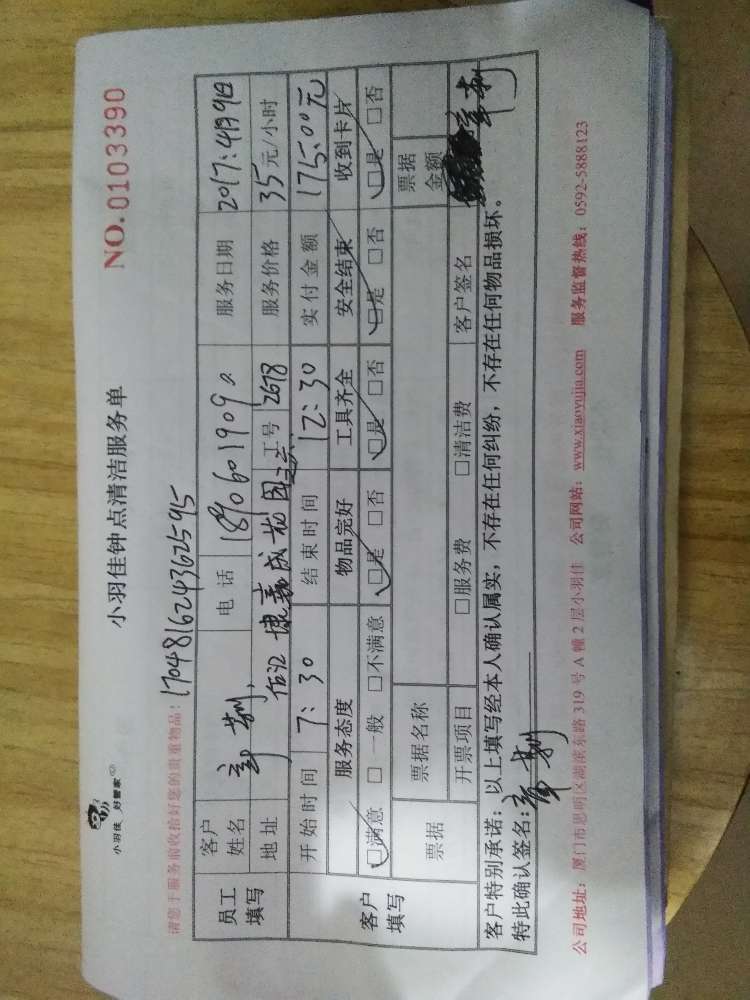 小羽佳 好管家
小羽佳钟点清洁服务单
NO.0103390
请您于服务前收拾好您的贵重物品:
170481624362595
员工填写 客户姓名 电话 服务日期 2017:4月9日
地址 工号 2678 服务价格 35元/小时
客户填写 开始时间 7:30 结束时间 12:30 实付金额 175.00元
服务态度 物品完好 工具齐全 安全结束 收到卡片
□满意 □一般 □不满意 □是 □否 □是 □否 □是 □否 □是 □否
票据 票据名称 票据金额
开票项目 □服务费 □清洁费 客户签名
客户特别承诺:以上填写经本人确认属实,不存在任何纠纷,不存在任何物品损坏。
特此确认签名:
公司地址:厦门市思明区湖滨东路319号A幢2层小羽佳 公司网站:www.xiaoyujia.com 服务监督热线:0592-5888123